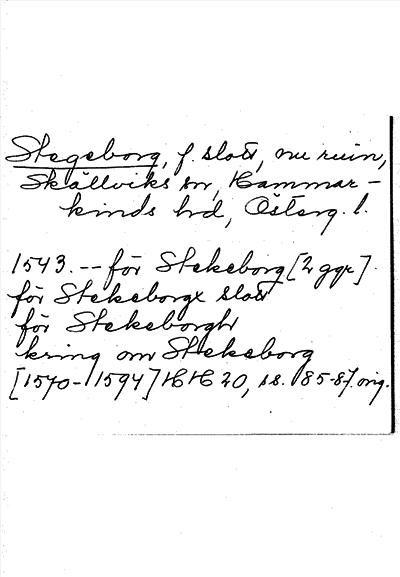 Stegeborg, f. slott, nu ruin,
Skällviks sn, Hammar-
kinds hd, Österg. l.
1543. -- för Stekeborg [2 ggr]
för Stekeborgx slott
för Stekeborgh
kring om Stekeborg
[1570-1594] HH 20, ss. 85-87. orig.